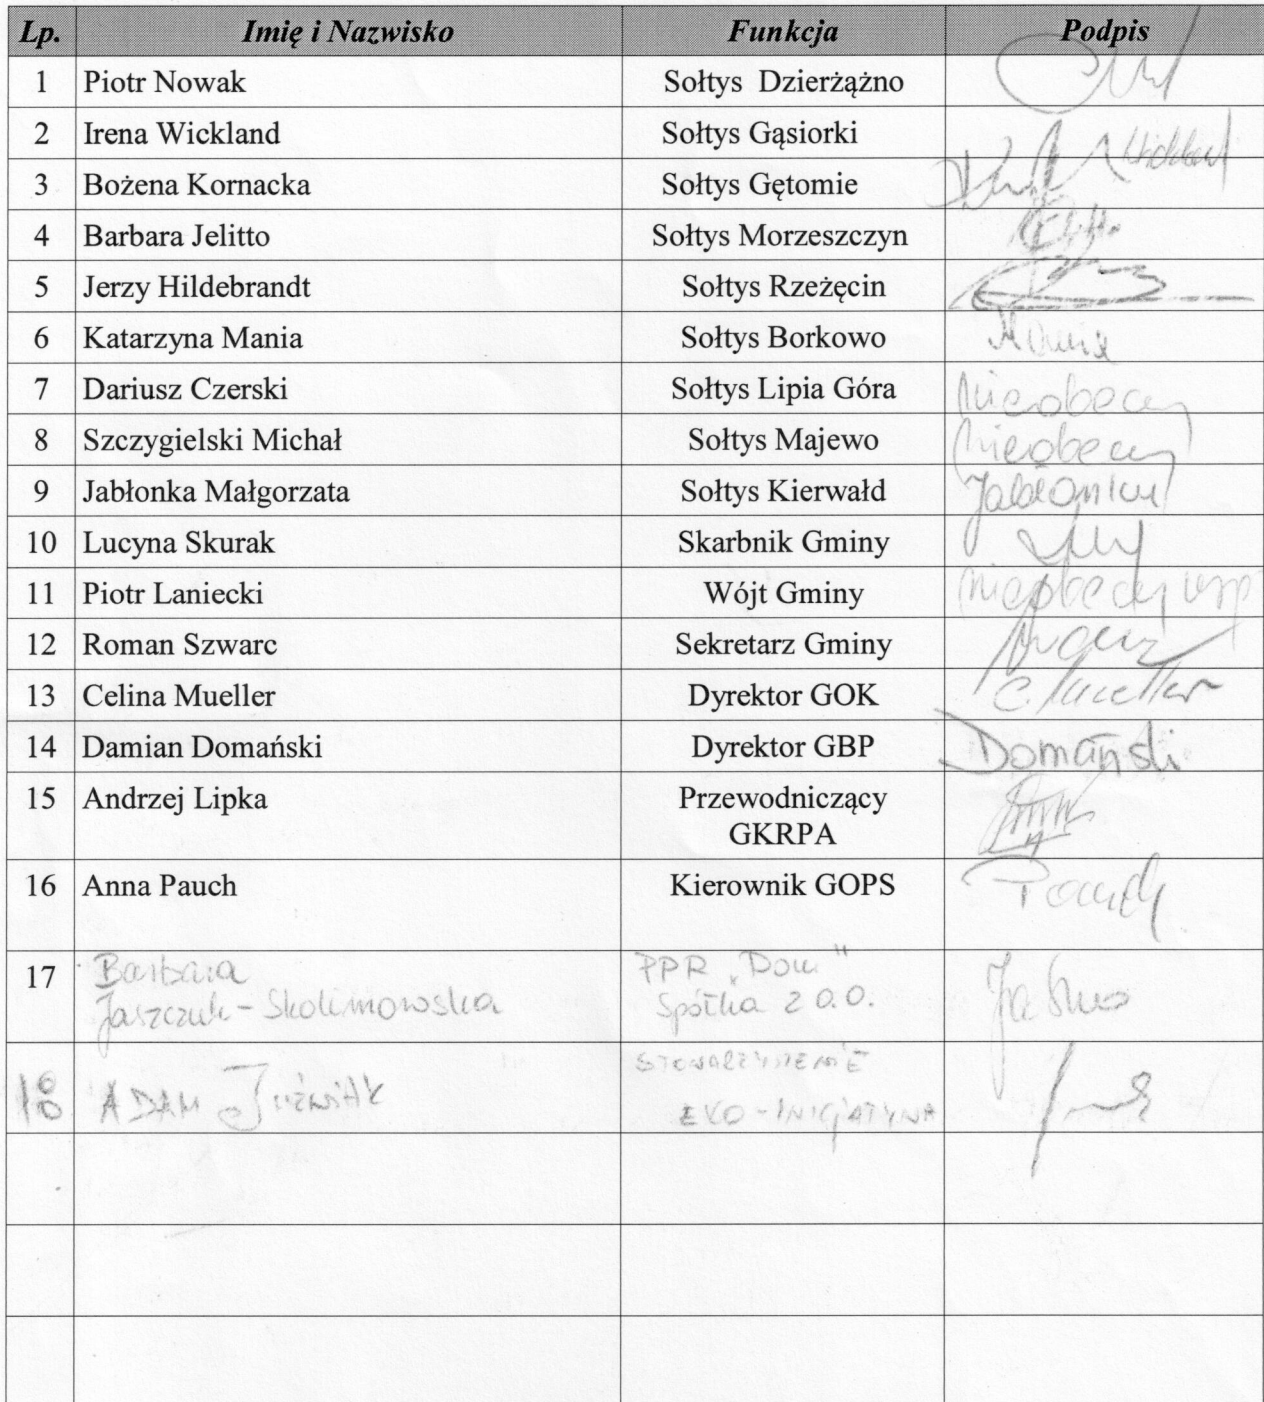 Lp. Imię i Nazwisko Funkcja Podpis
1 Piotr Nowak Sołtys Dzierżążno
2 Irena Wickland Sołtys Gąsiorki Wickland
3 Bożena Kornacka Sołtys Gętomie
4 Barbara Jelitto Sołtys Morzeszczyn
5 Jerzy Hildebrandt Sołtys Rzeżęcin
6 Katarzyna Mania Sołtys Borkowo Mania
7 Dariusz Czerski Sołtys Lipia Góra nieobecny
8 Szczygielski Michał Sołtys Majewo nieobecny
9 Jabłonka Małgorzata Sołtys Kierwałd Jabłonka
10 Lucyna Skurak Skarbnik Gminy
11 Piotr Laniecki Wójt Gminy nieobecny usp
12 Roman Szwarc Sekretarz Gminy
13 Celina Mueller Dyrektor GOK C. Mueller
14 Damian Domański Dyrektor GBP Domański
15 Andrzej Lipka Przewodniczący
GKRPA
16 Anna Pauch Kierownik GOPS Pauch
17 Barbara PPR „Dom"
Jaszczuk-Skolimowska Spółka z o.o.
18 ADAM Juźwiak STOWARZYSZENIE
EKO-INICJATYWA